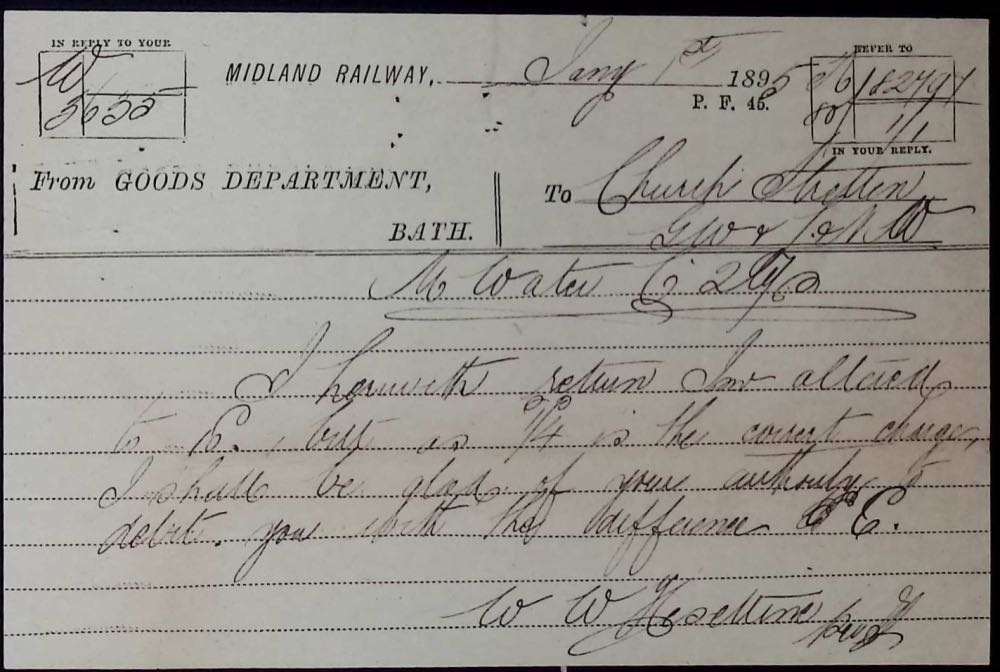 IN REPLY TO YOUR
W
5655
MIDLAND RAILWAY, Jany 1st 1895
P. F. 45.
REFER TO
18279
1/1
IN YOUR REPLY.
From GOODS DEPARTMENT,
BATH.
To Church Stretton
GW & L&NW
M Water Co 29/12
I herewith return Inv altered
to E. but as 9/4 is the correct charge,
I shall be glad of your authority to
debit you with the difference E.
W W Heseltine